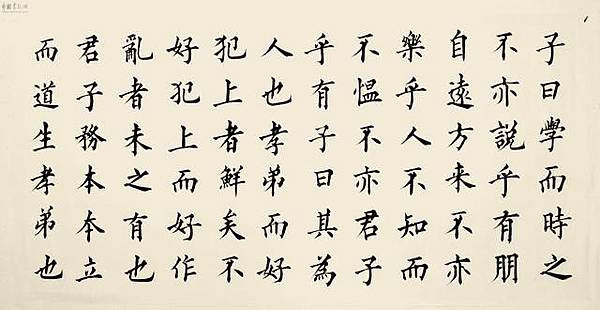 子曰學而時之
不亦説乎有朋
自遠方来不亦
樂乎人不知而
不愠不亦君子
乎有子曰其為
人也孝弟而好
犯上者鮮矣不
好犯上而好作
亂者未之有也
君子務本本立
而道生孝弟也